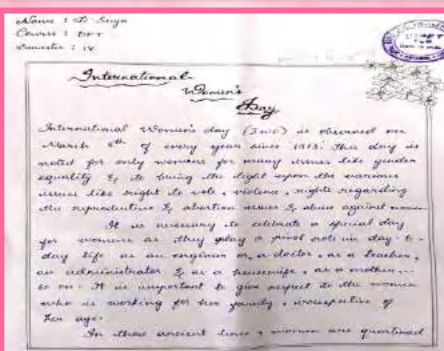 Name : D. Sriya
Course : BPT
Semester : IV
International
Women's
Day
International Women's day (IWD) is observed on
March 8th of every year since 1913. This day is
noted for only womens for many issues like gender
equality & to bring the light upon the various
issues like right to vote, violence, rights regarding
the reproductive & abortion issues & abuse against women.
It is necessary to celebrate a special day
for womens as they play a pivot role in day-to-
day life as an engineer or, a doctor, as a teacher,
an administrator & as a housewife, as a mother...
so on. It is important to give respect to the women
who is working for her family, irrespective of
her age.
In these ancient times, women are